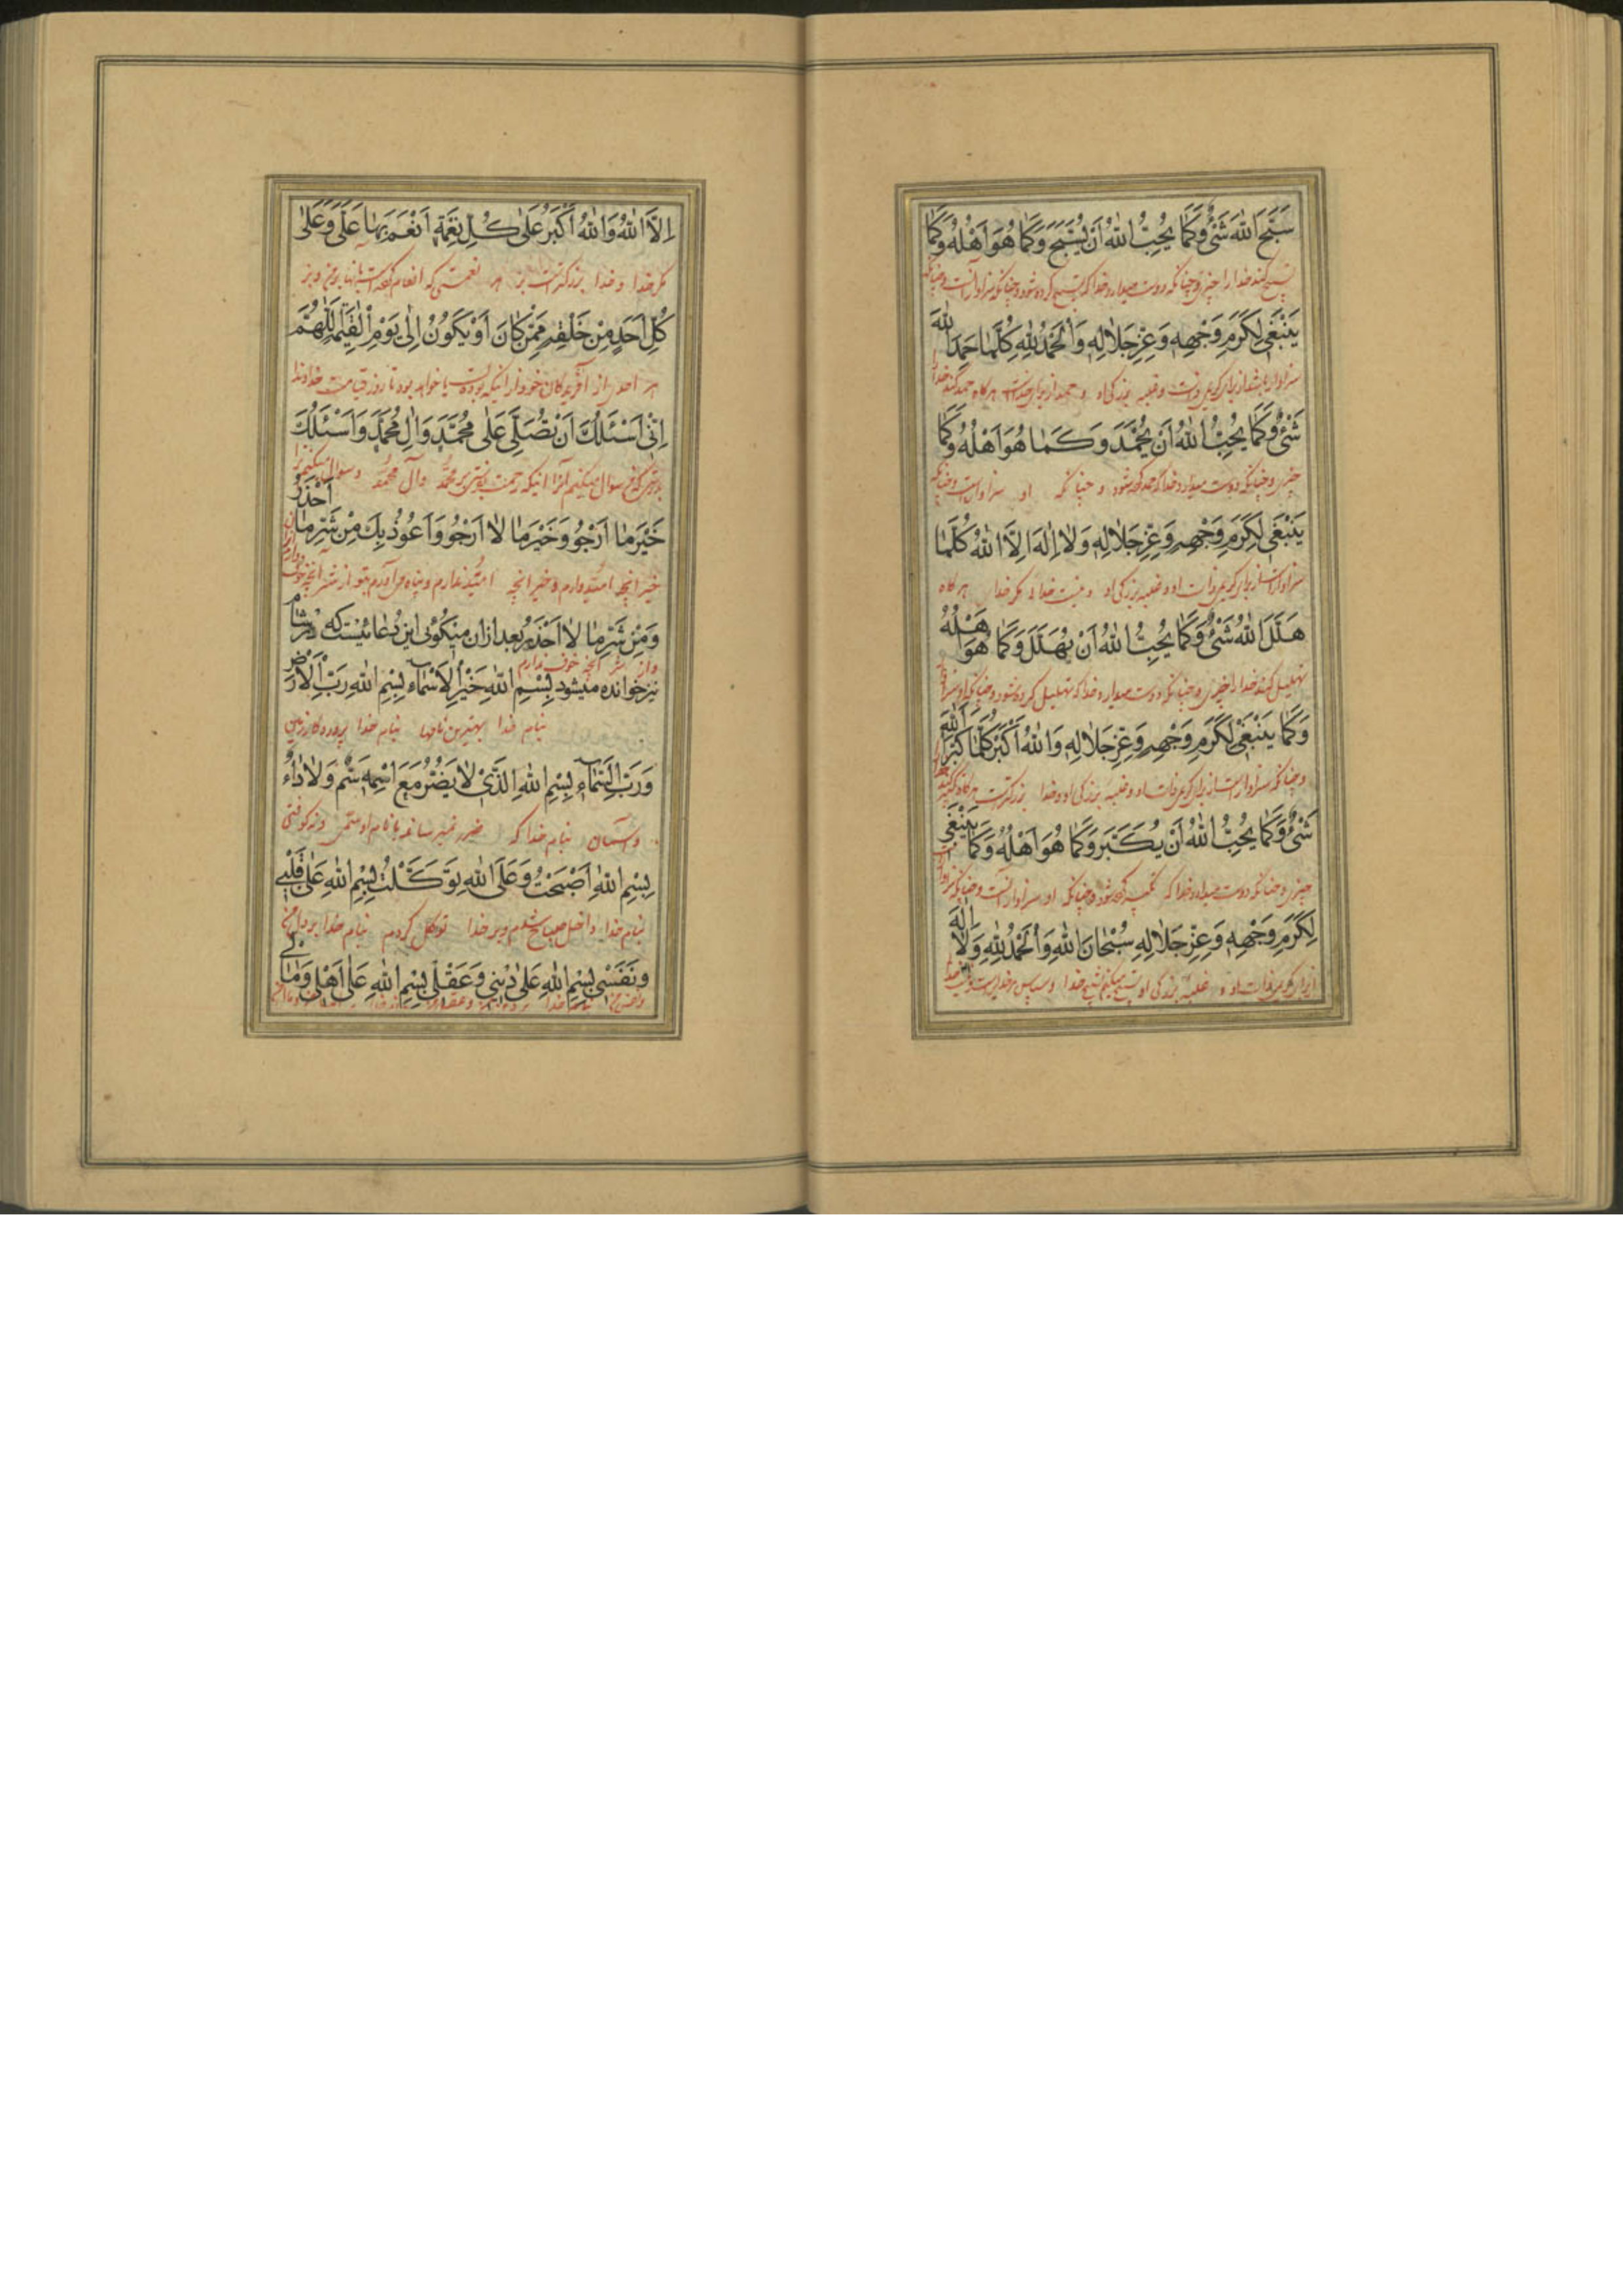 سَبَّحَ اللهَ شَيْءٌ وَكَمَا يُحِبُّ اللهُ أَنْ يُسَبَّحَ وَكَمَا هُوَ أَهْلُهُ وَكَمَا
تسبیح کند خدا را چیزی و چنانکه دوست میدارد خدا که تسبیح کرده شود و چنانکه سزاوار آنست و چنانکه
يَنْبَغِي لِكَرَمِ وَجْهِهِ وَعِزِّ جَلَالِهِ وَالْحَمْدُ لِلّٰهِ كُلَّمَا حَمِدَ اللهَ
سزاوار باشد از برای کریمی ذات و غلبه بزرگی او و حمد از برای خداست هر گاه حمد کند خدا را
شَيْءٌ وَكَمَا يُحِبُّ اللهُ أَنْ يُحْمَدَ وَكَمَا هُوَ أَهْلُهُ وَكَمَا
چیزی و چنانکه دوست میدارد خدا که حمد کرده شود و چنانکه او سزاوار است و چنانکه
يَنْبَغِي لِكَرَمِ وَجْهِهِ وَعِزِّ جَلَالِهِ وَلَا إِلٰهَ إِلَّا اللهُ كُلَّمَا
سزاوار است از برای کریمی ذات او و غلبه بزرگی او و نیست خدا ئی مگر خدا هر گاه
هَلَّلَ اللهَ شَيْءٌ وَكَمَا يُحِبُّ اللهُ أَنْ يُهَلَّلَ وَكَمَا هُوَ أَهْلُهُ
تهلیل کند خدا را چیزی و چنانکه دوست میدارد خدا که تهلیل کرده شود و چنانکه او سزاوار
وَكَمَا يَنْبَغِي لِكَرَمِ وَجْهِهِ وَعِزِّ جَلَالِهِ وَاللهُ أَكْبَرُ كُلَّمَا كَبَّرَ اللهَ
و چنانکه سزاوار است از برای کریمی ذات او و غلبه بزرگی او و خدا بزرگتر است هر گاه تکبیر کند خدا را
شَيْءٌ وَكَمَا يُحِبُّ اللهُ أَنْ يُكَبَّرَ وَكَمَا هُوَ أَهْلُهُ وَكَمَا يَنْبَغِي
چیزی و چنانکه دوست میدارد خدا که تکبیر کرده شود و چنانکه او سزاوار آنست و چنانکه سزاوار است
لِكَرَمِ وَجْهِهِ وَعِزِّ جَلَالِهِ سُبْحَانَ اللهِ وَالْحَمْدُ لِلّٰهِ وَلَا إِلٰهَ
از برای کریمی ذات او و غلبه بزرگی او تسبیح میکنم خدا و سپاس مر خدا راست و نیست خدا
إِلَّا اللهُ وَاللهُ أَكْبَرُ عَلَى كُلِّ نِعْمَةٍ أَنْعَمَ بِهَا عَلَيَّ وَعَلَى
مگر خدا و خدا بزرگتر است بر هر نعمتی که انعام کرده است بانها بر من و بر
كُلِّ أَحَدٍ مِنْ خَلْقِهِ مِمَّنْ كَانَ أَوْ يَكُونُ إِلَى يَوْمِ الْقِيٰمَةِ اللّٰهُمَّ
هر احدی از آفریدگان خود از انیکه بوده است یا خواهد بود تا روز قیامت خداوندا
إِنِّي أَسْئَلُكَ أَنْ تُصَلِّيَ عَلَى مُحَمَّدٍ وَآلِ مُحَمَّدٍ وَأَسْئَلُكَ
بدرستی که من سوال میکنم ترا اینکه رحمت بفرستی بر محمد و آل محمد و سوال میکنم ترا
خَيْرَ مَا أَرْجُو وَخَيْرَ مَا لَا أَرْجُو وَأَعُوذُ بِكَ مِنْ شَرِّ مَا أَحْذَرُ
خیر انچه امید دارم و خیر انچه امید ندارم و پناه می آورم بتو از شر آنچه خوف دارم
وَمِنْ شَرِّ مَا لَا أَحْذَرُ بعد ازان میگوئی این دعا ئیست که در شام
و از شر انچه خوف ندارم
نیز خوانده میشود بِسْمِ اللهِ خَيْرِ الْأَسْمَاءِ بِسْمِ اللهِ رَبِّ الْأَرْضِ
بنام خدا بهترین نامها بنام خدا پروردگار زمین
وَرَبِّ السَّمَاءِ بِسْمِ اللهِ الَّذِي لَا يَضُرُّ مَعَ اسْمِهِ سَمٌّ وَلَا دَاءٌ
و آسمان بنام خدا که ضرر نمیرساند با نام او سمی و نه کوفتی
بِسْمِ اللهِ أَصْبَحْتُ وَعَلَى اللهِ تَوَكَّلْتُ بِسْمِ اللهِ عَلَى قَلْبِي
بنام خدا داخل صباح شدم و بر خدا توکل کردم بنام خدا بر دل من
وَنَفْسِي بِسْمِ اللهِ عَلَى دِينِي وَعَقْلِي بِسْمِ اللهِ عَلَى أَهْلِي وَمَالِي